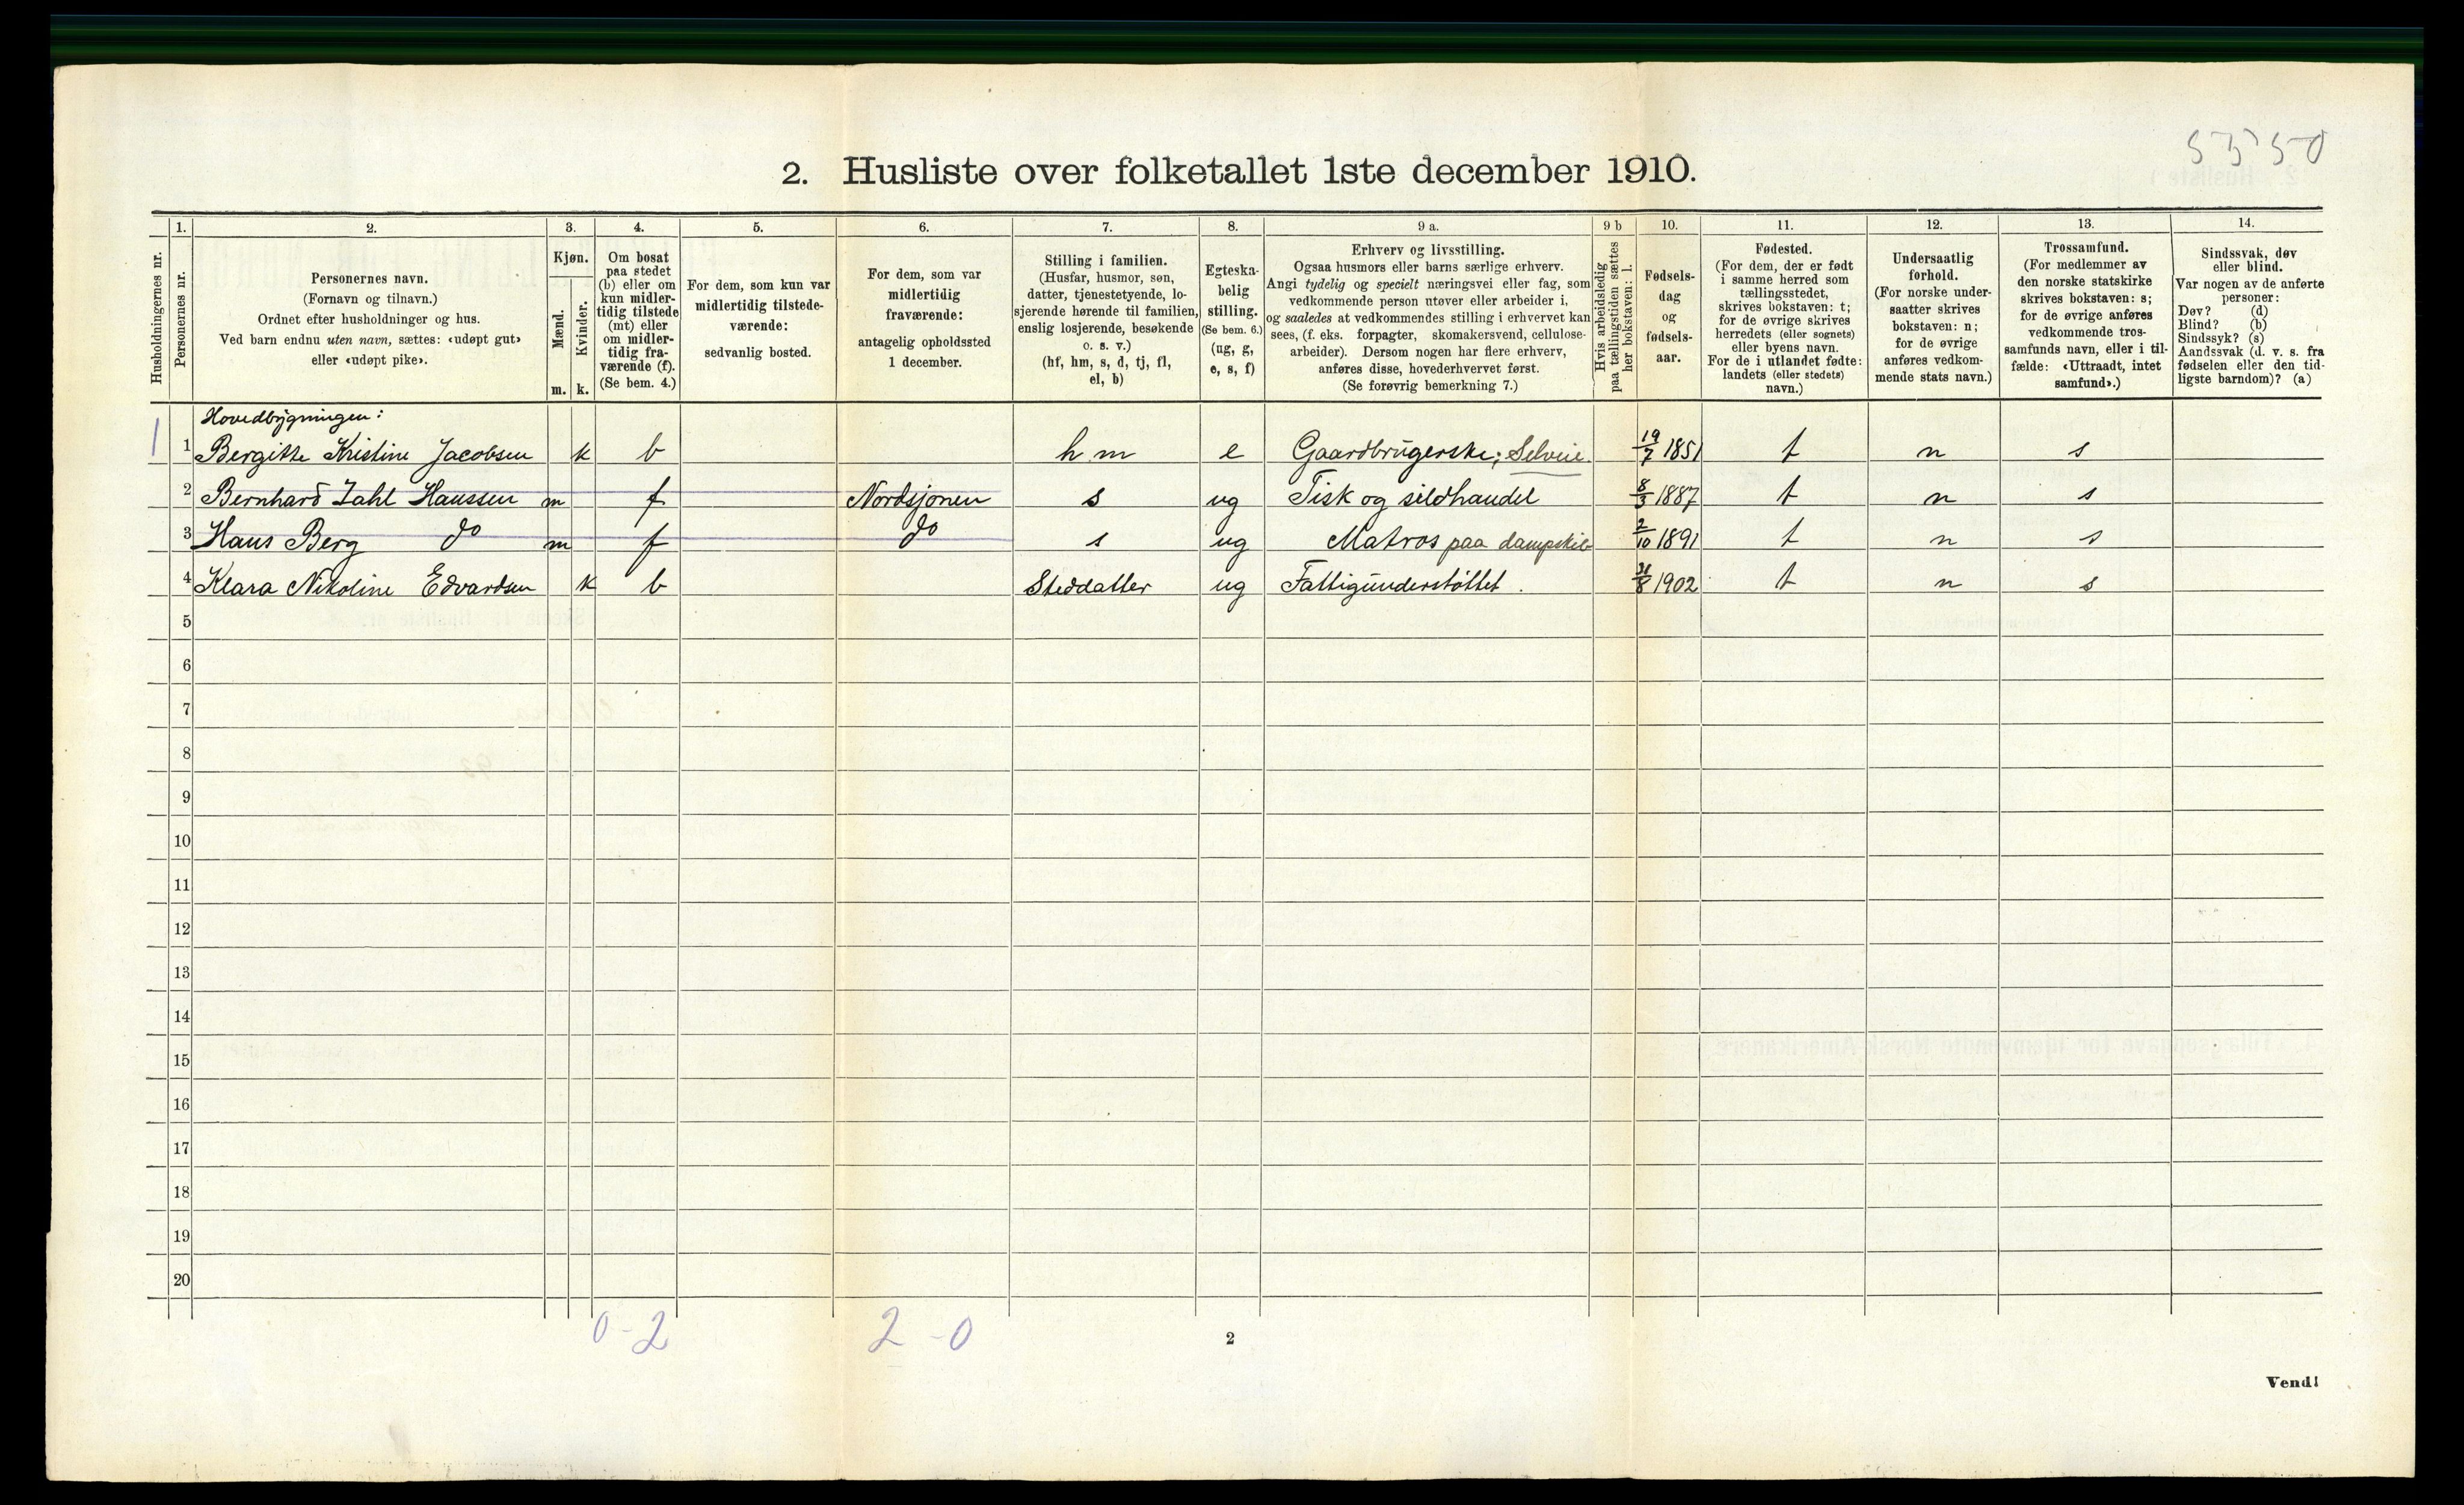 5350
2. Husliste over folketallet 1ste december 1910.
Husholdningernes nr.
1. Personernes nr.
2. Personernes navn. (Fornavn og tilnavn.) Ordnet efter husholdninger og hus. Ved barn endnu uten navn, sættes: «udøpt gut» eller «udøpt pike».
3. Kjøn. Mænd. m. Kvinder. k.
4. Om bosat paa stedet (b) eller om kun midlertidig tilstede (mt) eller om midlertidig fraværende (f). (Se bem. 4.)
5. For dem, som kun var midlertidig tilstedeværende: sedvanlig bosted.
6. For dem, som var midlertidig fraværende: antagelig opholdssted 1 december.
7. Stilling i familien. (Husfar, husmor, søn, datter, tjenestetyende, losjerende hørende til familien, enslig losjerende, besøkende o. s. v.) (hf, hm, s, d, tj, fl, el, b)
8. Egteskabelig stilling. (Se bem. 6.) (ug, g, e, s, f)
9 a. Erhverv og livsstilling. Ogsaa husmors eller barns særlige erhverv. Angi tydelig og specielt næringsvei eller fag, som vedkommende person utøver eller arbeider i, og saaledes at vedkommendes stilling i erhvervet kan sees, (f. eks. forpagter, skomakersvend, cellulosearbeider). Dersom nogen har flere erhverv, anføres disse, hovederhvervet først. (Se forøvrig bemerkning 7.)
9 b Hvis arbeidsledig paa tællingstiden sættes her bokstaven: l.
10. Fødselsdag og fødselsaar.
11. Fødested. (For dem, der er født i samme herred som tællingsstedet, skrives bokstaven: t; for de øvrige skrives herredets (eller sognets) eller byens navn. For de i utlandet fødte: landets (eller stedets) navn.)
12. Undersaatlig forhold. (For norske undersaatter skrives bokstaven: n; for de øvrige anføres vedkommende stats navn.)
13. Trossamfund. (For medlemmer av den norske statskirke skrives bokstaven: s; for de øvrige anføres vedkommende trossamfunds navn, eller i tilfælde: «Uttraadt, intet samfund».)
14. Sindssvak, døv eller blind. Var nogen av de anførte personer: Døv? (d) Blind? (b) Sindssyk? (s) Aandssvak (d. v. s. fra fødselen eller den tidligste barndom)? (a)
Hovedbygningen:
1 1 Bergitte Kristine Jacobsen k b hm e Gaardbrugerske; Selveie. 19/7 1851 t n s
2 Bernhard Zahl Hanssen m f Nordsjonen s ug Fisk og sildhandel 8/3 1887 t n s
3 Hans Berg do m f do s ug Matros paa dampskib 2/10 1891 t n s
4 Klara Nikoline Edvardsen k b Steddatter ug Fattigunderstøttet. 31/8 1902 t n s
5
6
7
8
9
10
11
12
13
14
15
16
17
18
19
20
0-2 2-0
2
Vend!